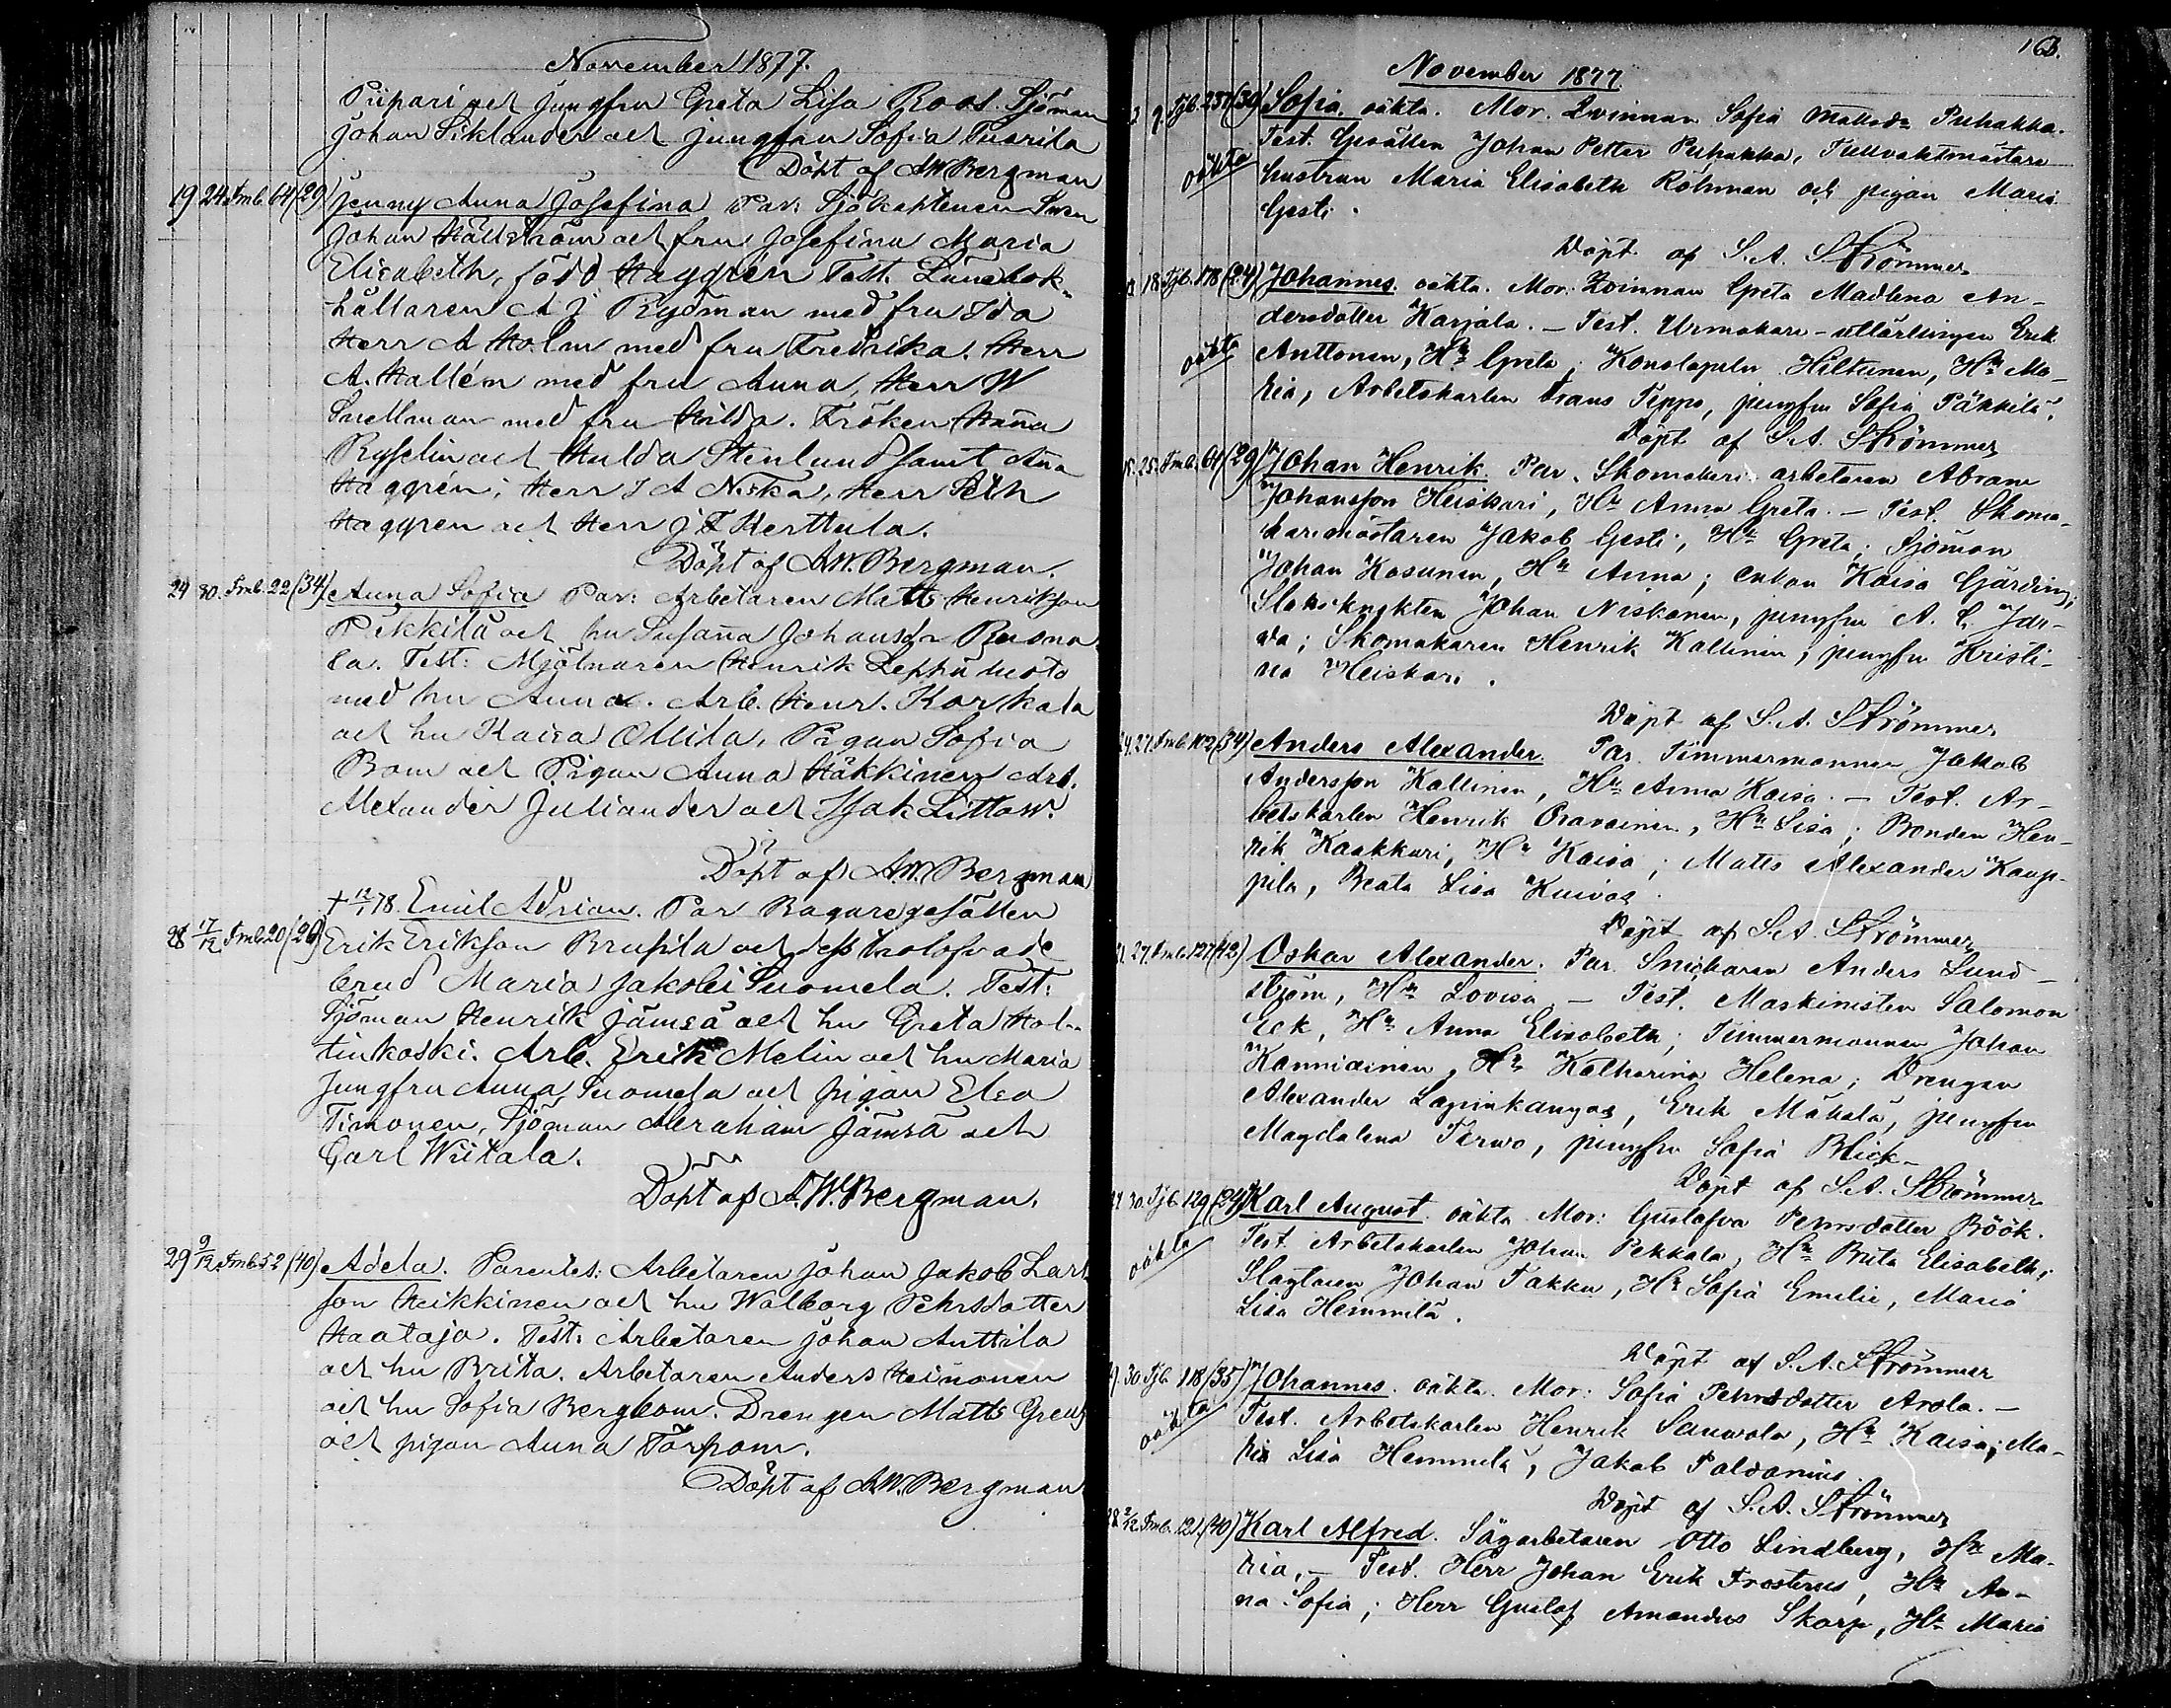 November 1877.
Piipari och jungfru Greta Lisa Roos. Sjöman
Johan Siklander och jungfru Sofia Tuorila
Döpt af AW Bergman
19 24. Fmb. 64 (29) Jenny Anna Josefina Par: Sjökaptenen Sven
Johan Hällström och fru Josefina Maria
Elisabeth, född Haggrén Test. Länebok-
hållaren A J Rydman med fru Ida
Herr A Holm med fru Fredrika. Herr
A. Hallém med fru Anna, Herr W
Snellman med fru Hilda. Fröken Hanna
Ryselin och Hulda Stenlund samt Anna
Haggrén; Herr J A Niska, Herr Seth
Haggren och Herr J F Herttula.
Döpt af AW. Bergman.
24 30. Fmb. 22 (34) Anna Sofia Par: Arbetaren Matts Henrikson
Pikkilä och hu Susanna Johansdr Ruona
la. Test: Mjölnaren Henrik Leppäluoto
med hu Anna. Arb. Henr. Korkala
och hu Kaisa Ollila, Pigan Sofia
Bom och Pigan Anna Häkkinen Arb.
Alexander Juliander och Isak Littow.
Döpt af A.W. Bergman
† 12/1 78. Emil Adrian. Par Bagaregesällen
28 17/12 Fmb. 20 (29) Erik Erikson Brusila och dess trolofvade
brud Maria Jakobi Suomela. Test:
Sjöman Henrik Jämsä och hu Greta Hol-
tinkoski. Arb. Erik Melin och hu Maria
Jungfru Anna Suomela och pigan Elsa
Timonen, Sjöman Abraham Jämsä och
Carl Wiitala.
Döpt af A.W. Bergman.
29 9/12 Fmb. 52 (40) Adela. Parentes: Arbetaren Johan Jakob Lars
son Heikkinen och hu Walborg Pehrsdotter
Haataja. Test: Arbetaren Johan Anttila
och hu Brita. Arbetaren Anders Heinonen
och hu Sofia Bergbom. Drengen Matts Greus
och pigan Anna Torpom.
Döpt af A.W. Bergman
163.
November 1877.
9. Tjb. 257 (39) Sofia. oäkta. Mor. Qvinnan Sofia Mattsdr Puhakka.
oäkta Test. Gesällen Johan Petter Puhakka, Tullvaktmästare
hustrun Maria Elisabeth Röhman och pigan Maria
Gesti.
Döpt af S. A. Strömmer
18. Tjb. 178 (24) Johannes. oäkta. Mor: Qvinnan Greta Madlena An-
dersdotter Karjala. – Test. Urmakare-utlärlingen Erik
oäkta Anttonen, Hu Greta; Konstapeln Hiltunen, Hu Ma-
ria, Arbetskarlen Frans Teppo, jungfru Sofia Päkkilä.
Döpt af S. A. Strömmer
15. 25. Fmb. 61 (29) Johan Henrik. Par. Skomakeri arbetaren Abram
Johansson Heiskari, Hu Anna Greta. – Test. Skoma-
karemästaren Jakob Gesti, Hu Greta; Sjöman
Johan Kosunen, Hu Anna; enkan Kaisa Gjärding;
Slaksknekten Johan Niskanen, jungfru A. C. Jär-
da; Skomakaren Henrik Kallinen, jungfru Kristi-
na Heiskari.
Döpt af S. A. Strömmer
24. 27. Fmb. 102 (34) Anders Alexander. Par. Timmermannen Jakob
Andersson Kallinen, Hu Anna Kaisa. – Test. Ar-
betskarlen Henrik Oravainen, Hu Lisa; Bonden Hen-
rik Kaakkuri, Hu Kaisa; Matts Alexander Kaup-
pila, Beata Lisa Kuivas.
Döpt af S. A. Strömmer
21. 27. Fmb. 127 (42) Oskar Alexander. Par. Snickaren Anders Lund-
ström, Hu Lovisa – Test. Maskinisten Salomon
Eek, Hu Anna Elisabeth; Timmermannen Johan
Kanniainen, Hu Katharina Helena; Drengen
Alexander Lapinkangas, Erik Mäkelä, jungfru
Magdalena Terwo, jungfru Sofia Blick.
Döpt af S. A. Strömmer
30. Tjb. 129 (24) Karl August. oäkta Mor: Gustafva Pehrsdotter Böök.
oäkta Test. Arbetskarlen Johan Pekkala, Hu Brita Elisabeth;
Slagtaren Johan Takku, Hu Sofia Emilie, Maria
Lisa Hemmilä.
Döpt af S. A. Strömmer
30. Tjb. 118 (35) Johannes. oäkta. Mor: Sofia Pehrsdotter Arola. –
oäkta Test. Arbetskarlen Henrik Sauwola, Hu Kaisa; Ma-
ria Lisa Hemmilä, Jakob Paldanius.
Döpt af S. A. Strömmer
28. 2/12 Fmb. 121. (40) Karl Alfred. Sågarbetaren Otto Lindberg, Hu Ma-
ria, – Test. Herr Johan Erik Frosterus, Hu An-
na Sofia; Herr Gustaf Amandus Skarp, Hu Maria